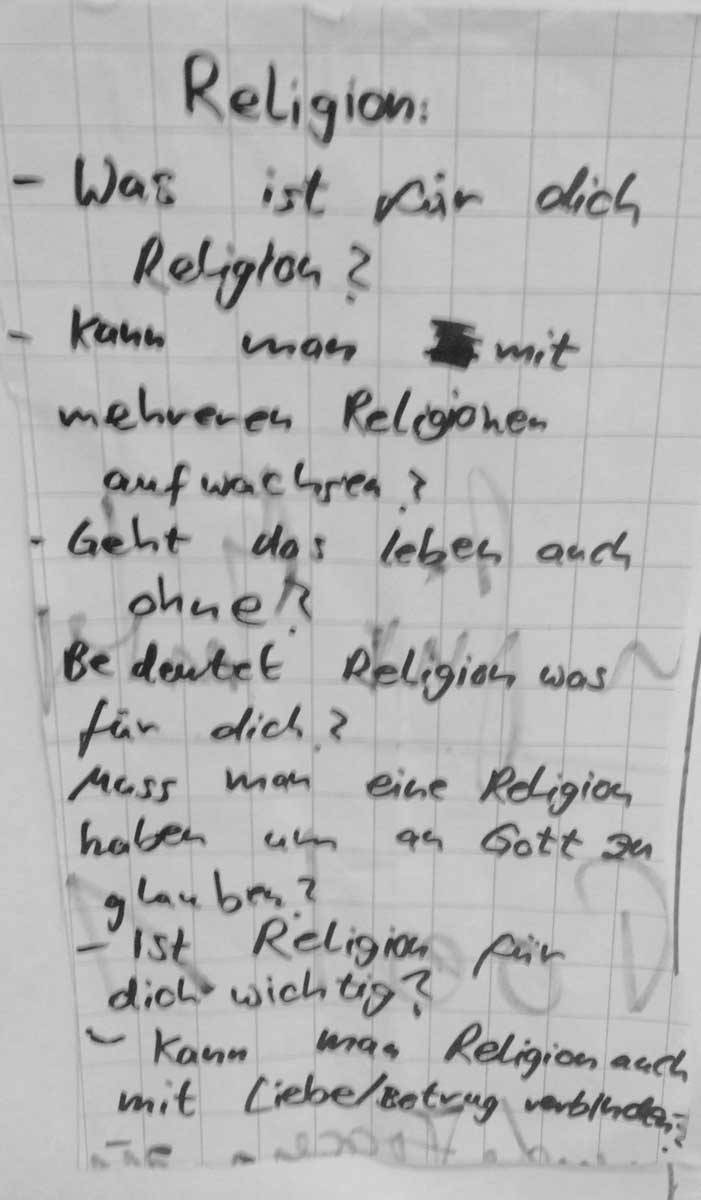 Religion:
- Was ist für dich
Religion?
- Kann man mit
mehreren Religionen
aufwachsen?
- Geht das leben auch
ohne?
Bedeutet Religion was
für dich?
Muss man eine Religion
haben um an Gott zu
glauben?
- Ist Religion für
dich wichtig?
- Kann man Religion auch
mit Liebe/Betrug verbinden?